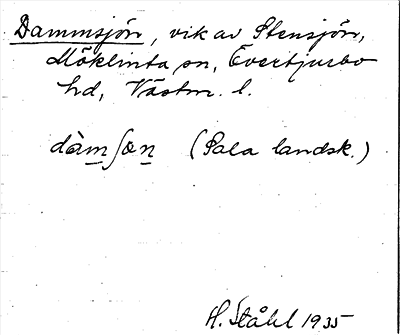 Dammsjön, vik av Stensjön,
Möklinta sn, Övertjurbo
hd, Västm. l.
dàmʃœn (Sala landsk.)
H. Ståhl 1935